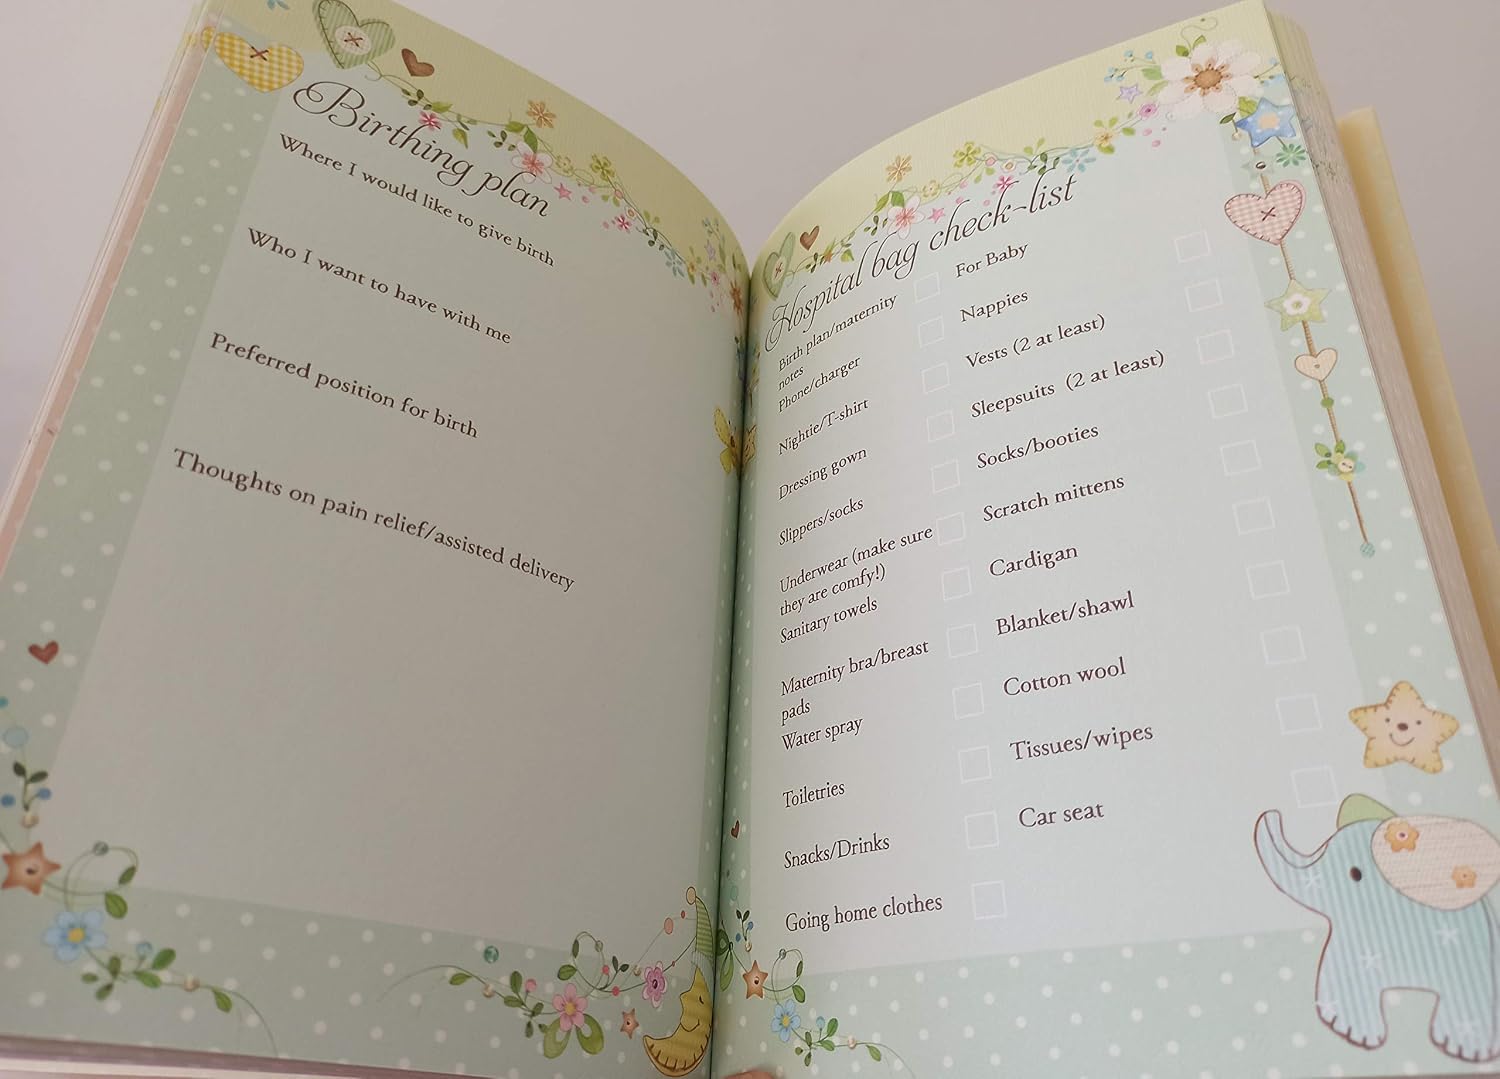 Birthing plan
Where I would like to give birth
Who I want to have with me
Preferred position for birth
Thoughts on pain relief/assisted delivery
Hospital bag check-list
Birth plan/maternity
notes
Phone/charger
Nightie/T-shirt
Dressing gown
Slippers/socks
Underwear (make sure
they are comfy!)
Sanitary towels
Maternity bra/breast
pads
Water spray
Toiletries
Snacks/Drinks
Going home clothes
For Baby
Nappies
Vests (2 at least)
Sleepsuits (2 at least)
Socks/booties
Scratch mittens
Cardigan
Blanket/shawl
Cotton wool
Tissues/wipes
Car seat